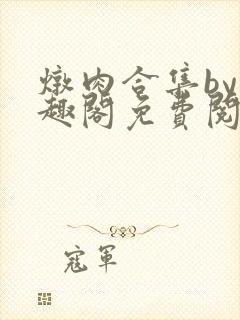 燉肉合集by
趣閣免費閱
寇軍